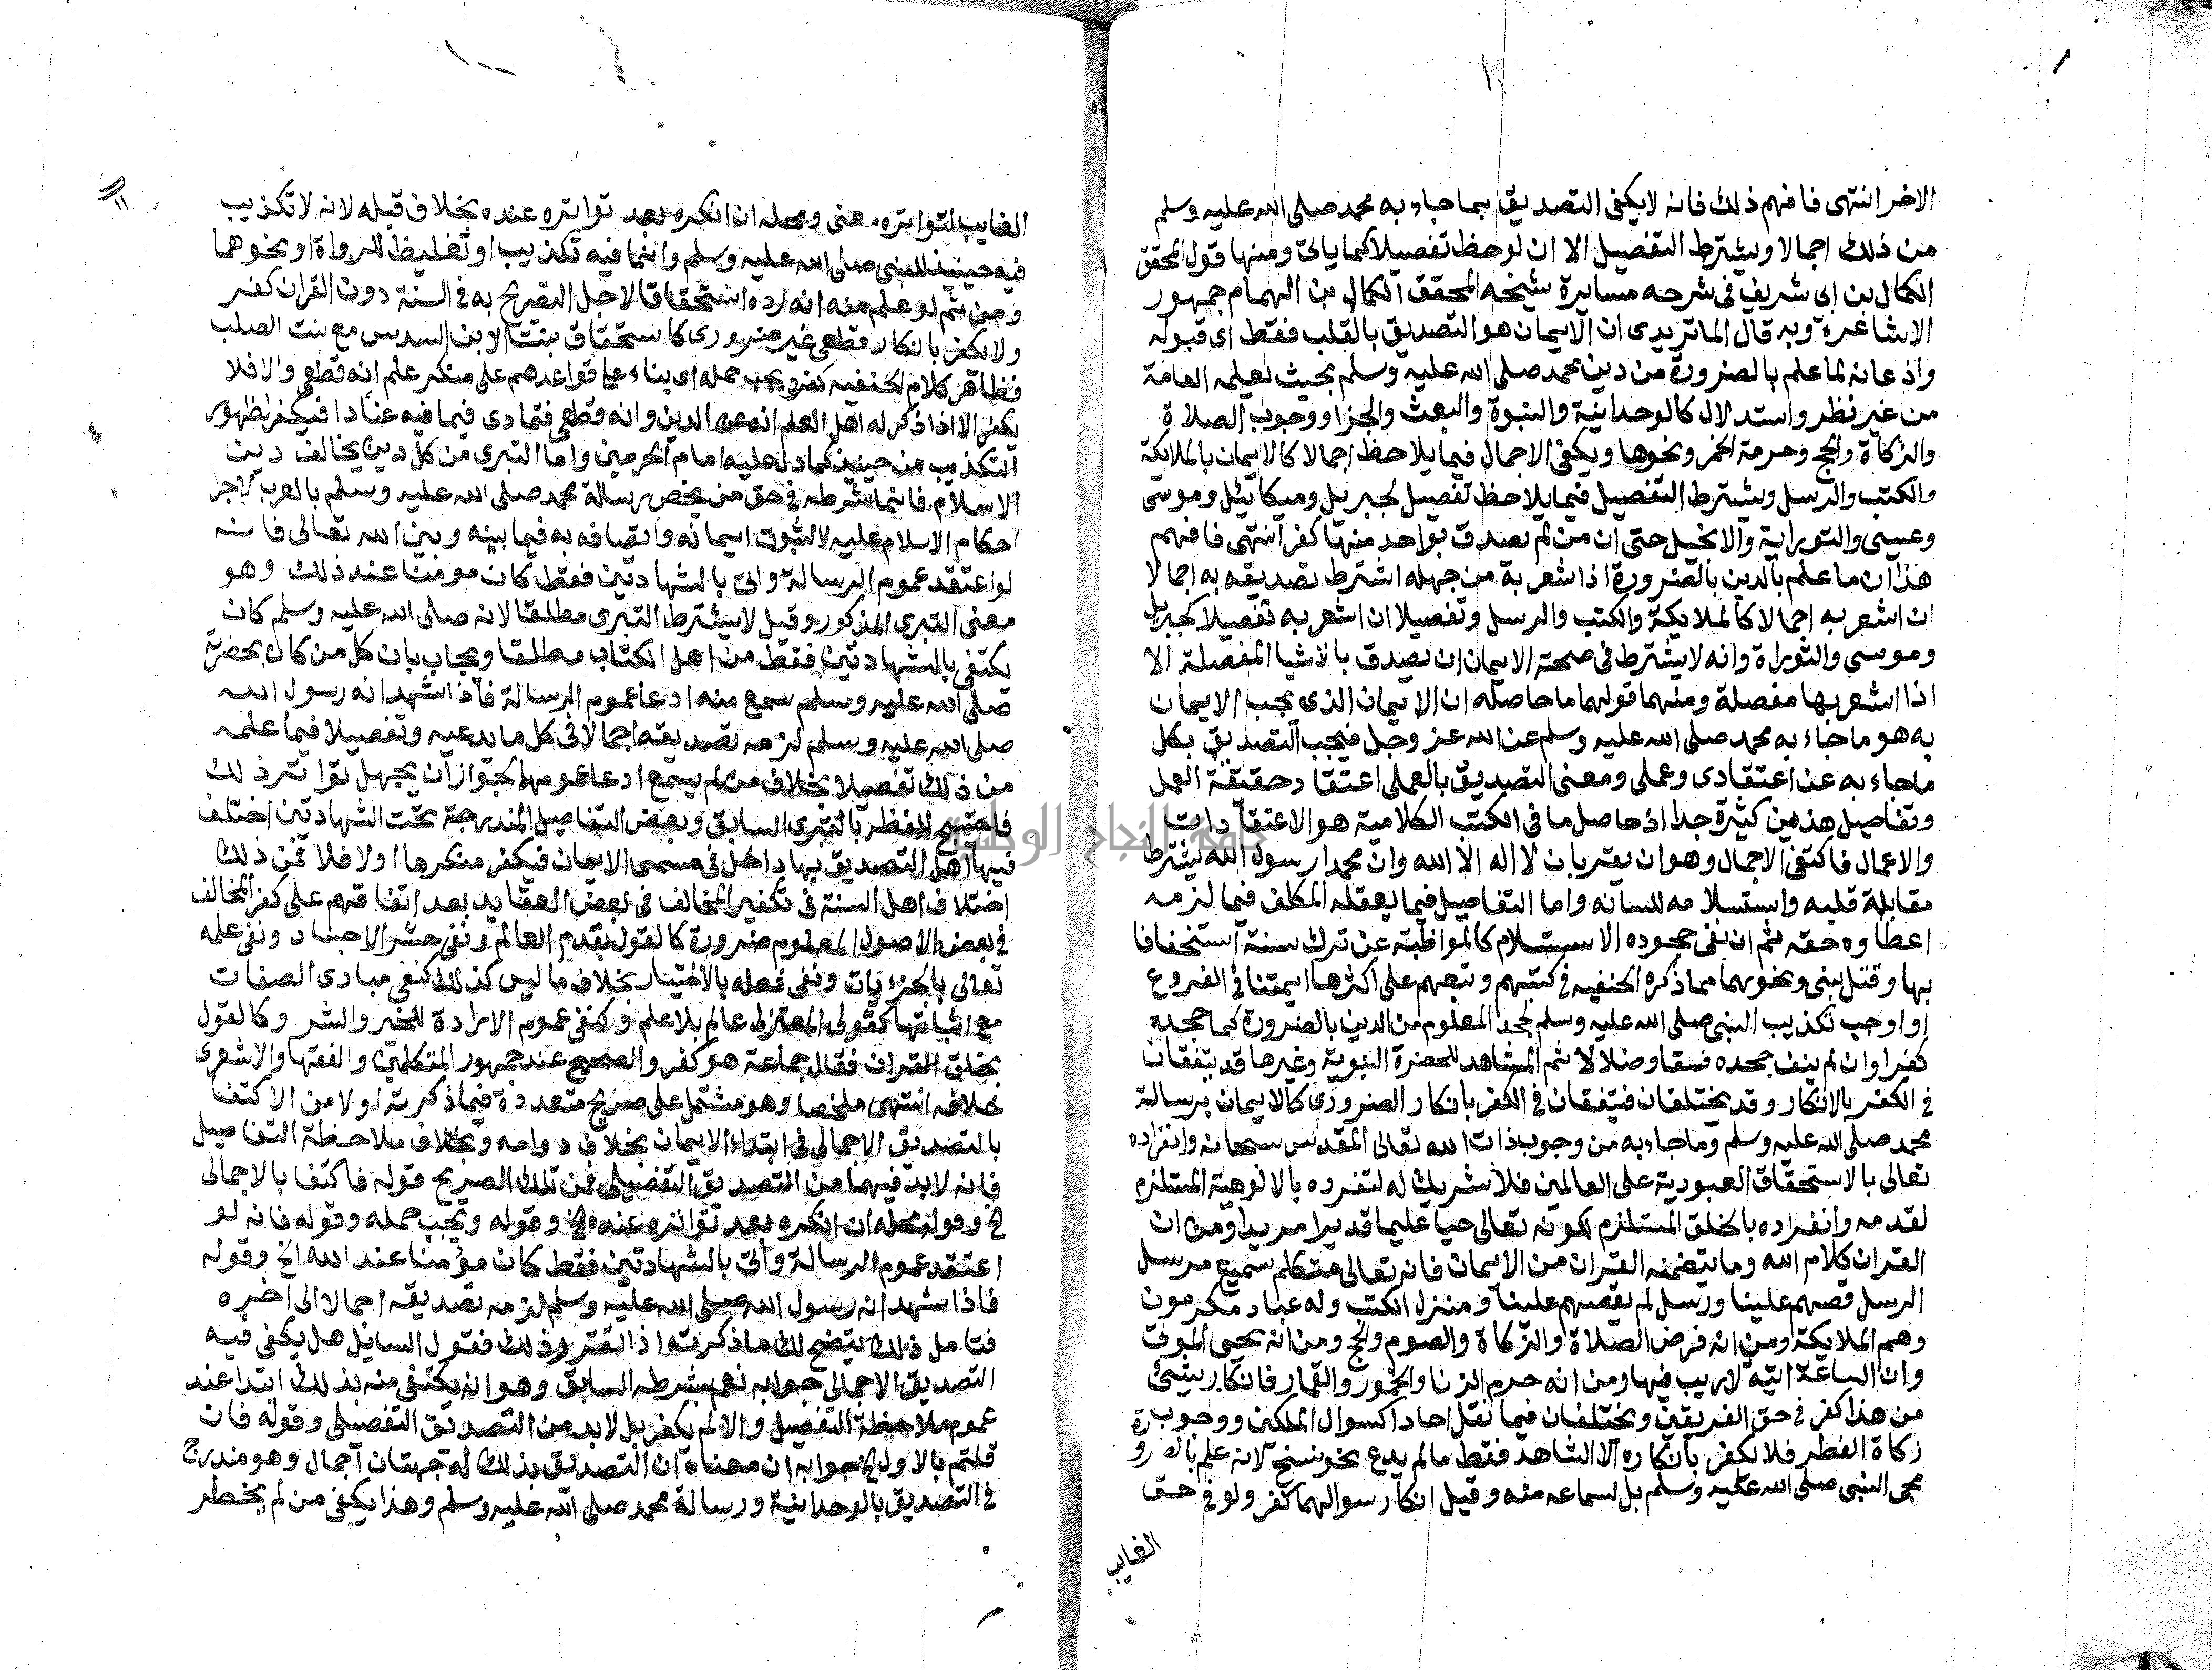 الاخر انتهى فافهم ذلك فانه لا يكفى التصديق بما جاء به محمد صلى الله عليه وسلم
من ذلك اجمالا ويشترط التفصيل الا ان لوحظ تفصيلا كما ياتى ومنها قول المحقق
الكمال بن ابى شريف فى شرحه مسايرة شيخه المحقق الكمال بن الهمام جمهور
الاشاعرة وبه قال الماتريدى ان الايمان هو التصديق بالقلب فقط اى قبوله
واذعانه لما علم بالضرورة من دين محمد صلى الله عليه وسلم بحيث تعلمه العامة
من غير نظر واستدلال كالوحدانية والنبوة والبعث والجزا ووجوب الصلاة
والزكاة والحج وحرمة الخمر ونحوها ويكفى الاجمال فيما يلاحظ اجمالا كالايمان بالملايكة
والكتب والرسل ويشترط التفصيل فيما يلاحظ تفصيل لجبريل وميكائيل وموسى
وعيسى والتوراية والانجيل حتى ان من لم يصدق بواحد منها كفر انتهى فافهم
هذا ان ما علم بالدين بالضرورة اذا شعر به من جهله اشترط تصديقه به اجمالا
ان اشعر به اجمالا كالملايكة والكتب والرسل وتفصيلا ان اشعر به تفصيلا كجبريل
وموسى والتوراة وانه لا يشترط فى صحة الايمان ان يصدق بالاشيا المفصلة الا
اذا اشعر بها مفصلة ومنهما قولهما ما حاصله ان الايمان الذى يجب الايمان
به هو ما جاء به محمد صلى الله عليه وسلم عن الله عز وجل فيجب التصديق بكل
ما جاء به عن اعتقادى وعملى ومعنى التصديق بالعملى اعتقاد حقيقة العمل
وتفاصيل هذين كثيرة جدا اذ حاصل ما فى الكتب الكلامية هو الاعتقادات
والاعمال فاكتفى الاجمال وهو ان يقر بان لا اله الا الله وان محمدا رسول الله يشترط
مقابلة قلبه واستسلامه للسانه واما التفاصيل فيما يعقله المكلف فيما لزمه
اعطاوه حقه ثم ان نفى جحوده الاستسلام كالمواظبة عن ترك سنة استخفافا
بها وقتل نبى ونحوهما مما ذكره الحنفيه فى كتبهم وتبعهم على اكثرها ايمتنا فى الفروع
او اوجب تكذيب النبى صلى الله عليه وسلم لجحد المعلوم من الدين بالضرورة كما جحده
كفرا وان لم ينف جحده فسقا وضلالا ثم المشاهد للحضرة النبوية وغيرها قد يتفقان
فى الكفر بالانكار وقد يختلفان فيتفقان فى الكفر بانكار الضرورى كالايمان برسالة
محمد صلى الله عليه وسلم وما جاء به من وجوب ذات الله تعالى المقدس سبحانه وانفراده
تعالى بالاستحقاق العبودية على العالمين فلا شريك له لتفرده بالالوهية المستلزم
لقدمه وانفراده بالخلق المستلزم لكونه تعالى حيا عليما قديرا مريدا ومن ان
القران كلام الله وما يتضمنه القران من الايمان فانه تعالى متكلم سميع مرسل
الرسل قصهم علينا ورسل لم يقصهم علينا ومنزل الكتب وله عباد مكرمون
وهم الملايكة ومن انه فرض الصلاة والزكاة والصوم والحج ومن انه يحيى الموتى
وان الساعة اتية لا ريب فيها ومن انه حرم الزنا والخمور والقمار فانكار شيئ
من هذا كفر فى حق الفريقين ويختلفان فيما نقل احادا كسوال الملكين ووجوب
زكاة الفطر فلا يكفر بانكاره الا الشاهد فقط ما لم يدع نحو نسخ لانه علم بالضرورة
مجى النبى صلى الله عليه وسلم بل لسماعه منه وقيل انكار سوالهما كفر ولو فى حق
الغايب
الغايب لتواتره معنى ومحله ان انكره بعد تواتره عنده بخلاف قبله لانه لا تكذيب
فيه حينيذ للنبى صلى الله عليه وسلم وانما فيه تكذيب او تغليظ للرواة او نحوهما
ومن ثم لو علم منه انه رده استحقاقا لاجل التصريح به فى السنة دون القران كفر
ولا يكفر بانكار قطعى غير ضرورى كاستحقاق بنت الابن السدس مع بنت الصلب
فظاهر كلام الحنفيه كفره ويجب حمله اى بناء على قواعدهم على منكر علم انه قطعى والا فلا
يكفر الا اذا ذكر له اهل العلم انه من الدين وانه قطعى فتمادى فيما فيه عنادا فيكفر لظهور
التكذيب من حينيذ كما دل عليه امام الحرمين واما التبرى من كل دين يخالف دين
الاسلام فانما شرطه فى حق من يخص رسالة محمد صلى الله عليه وسلم بالعرب لاجر
احكام الاسلام عليه لا لثبوت ايمانه واتصافه به فيما بينه وبين الله تعالى فانه
لو اعتقد عموم الرسالة واتى بالشهادتين فقط كان مومنا عند ذلك وهو
معنى التبرى المذكور وقيل لا يشترط التبرى مطلقا لانه صلى الله عليه وسلم كان
يكتفى بالشهادتين فقط من اهل الكتاب مطلقا ويجاب بان كل من كان بحضرته
صلى الله عليه وسلم سمع منه ادعا عموم الرسالة فاذا شهد انه رسول الله
صلى الله عليه وسلم لزمه تصديقه اجمالا فى كل ما يدعيه وتفصيلا فيما علمه
من ذلك تفصيلا بخلاف من لم يسمع ادعا عمومها لجواز ان يجهل تواتر ذلك
فاحتيج للفظ بالتبرى السابق وبعض التفاصيل المندرجة تحت الشهادتين اختلف
فيها هل التصديق بها داخل فى مسمى الايمان فيكفر منكرها او لا فلا فمن ذلك
اختلاف اهل السنة فى تكفير المخالف فى بعض العقايد بعد اتفاقهم على كفر المخالف
فى بعض الاصول المعلوم ضرورة كالقول بقدم العالم ونفى حشر الاجساد ونفى علمه
تعالى بالجزئيات ونفى فعله بالاختيار بخلاف ما ليس كذلك كنفى مبادى الصفات
مع اثباتها كقول المعتزلى عالم بلا علم وكنفى عموم الارادة للخير والشر وكالقول
بخلق القران فقال جماعة هو كفر والصحيح عند جمهور المتكلمين والفقها والاشعرى
خلافه انتهى ملخصا وهو مشتمل على صريح متعددة فيما ذكرته اولا من الاكتفا
بالتصديق الاجمالى فى ابتداء الايمان بخلاف دوامه وبخلاف ملاحظة التفاصيل
فانه لا بد فيهما من التصديق التفصيلى فمن تلك الصريح قوله فاكتفا بالاجمالى
الخ وقوله محله ان انكره بعد تواتره عنده الخ وقوله ويجب حمله وقوله فانه لو
اعتقد عموم الرسالة واتى بالشهادتين فقط كان مؤمنا عند الله الخ وقوله
فاذا شهد انه رسول الله صلى الله عليه وسلم لزمه تصديقه اجمالا الى اخره
فتامل ذلك يتضح لك ما ذكرته اذا تقرر ذلك فقول السايل هل يكفى فيه
التصديق الاجمالى جوابه نعم بشرطه السابق وهو انه يكتفى منه بذلك ابتدا عند
عموم ملاحظة التفصيل والا لم يكفر بل لا بد من التصديق التفصيلى وقوله فان
قلتم بالاول الخ جوابه ان معناه ان التصديق بذلك له جهتان اجمال وهو مندرج
فى التصديق بالوحدانية ورسالة محمد صلى الله عليه وسلم وهذا يكفى من لم يخطر
جامعة النجاح الوطنية